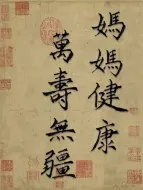 媽媽健康
萬壽無疆